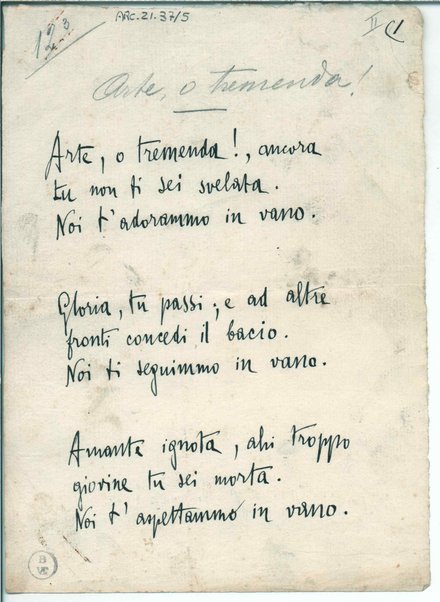 ARC.21.37/5
II
1
123
Arte, o tremenda!
Arte, o tremenda!, ancora
tu non ti sei svelata.
Noi t'adorammo in vano.
Gloria, tu passi; e ad altre
fronti concedi il bacio.
Noi ti seguimmo in vano.
Amante ignota, ahi troppo
giovine tu sei morta.
Noi t'aspettammo in vano.
B
VE